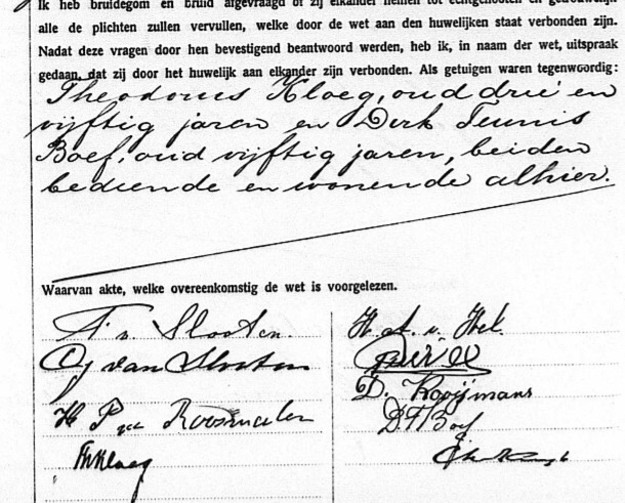 Ik heb bruidegom en bruid afgevraagd of zij elkander nemen tot echtgenooten en getrouwelijk
alle de plichten zullen vervullen, welke door de wet aan den huwelijken staat verbonden zijn.
Nadat deze vragen door hen bevestigend beantwoord werden, heb ik, in naam der wet, uitspraak
gedaan, dat zij door het huwelijk aan elkander zijn verbonden. Als getuigen waren tegenwoordig:
Theodorus Kloeg, oud drie en
vijftig jaren en Dirk Teunis
Boef, oud vijftig jaren, beiden
bediende en wonende alhier.
Waarvan akte, welke overeenkomstig de wet is voorgelezen.
A v. Slooten.
CJ van Slooten
H P van Roosmalen
ThKloeg
H. A. v. Hek.
D. Kooijmans
D T Boef